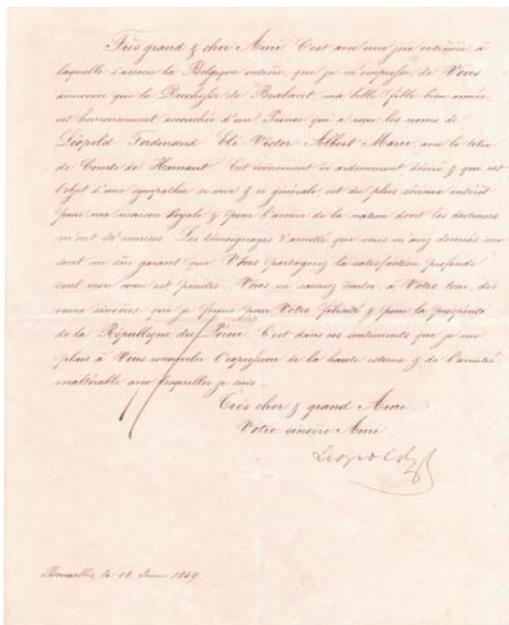 Très grand & cher Ami. C'est avec une joie extrême, à
laquelle s'associe la Belgique entière, que je m'empresse de Vous
annoncer que la Duchesse de Brabant, ma belle fille bien aimée,
est heureusement accouchée d'un Prince qui a reçu les noms de
Léopold Ferdinand Elie Victor Albert Marie, avec le titre
de Comte de Hainaut. Cet événement si ardemment désiré & qui est
l'objet d'une sympathie si vive & si générale, est du plus sérieux intérêt
pour ma maison Royale & pour l'avenir de la nation dont les destinées
m'ont été remises. Les témoignages d'amitié que vous m'avez donnés me
sont un sûr garant que Vous partagerez la satisfaction profonde
dont mon cœur est pénétré. Vous ne sauriez douter, à Votre tour, des
vœux sincères que je forme pour Votre félicité & pour la prospérité
de la République du Pérou. C'est dans ces sentiments que je me
plais à Vous renouveler l'expression de la haute estime & de l'amitié
inaltérable avec lesquelles je suis,
Très cher & grand Ami,
Votre sincère Ami
Léopold
Bruxelles, le 18 Juin 1859